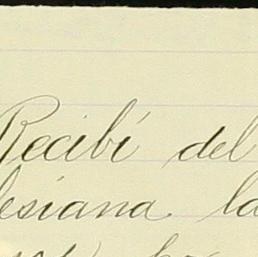 Recibí del
lesiana la